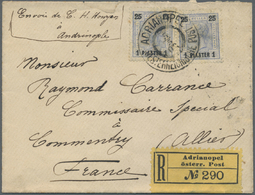 Envoi de
à
Andrinople
25 25
1 PIASTER 1 1 PIASTER 1
ADRIANOPEL
Monsieur
Raymond Carrance
Commissaire Spécial
à
Commentry (Allier)
France
Adrianopel
österr. Post
R
№ 290